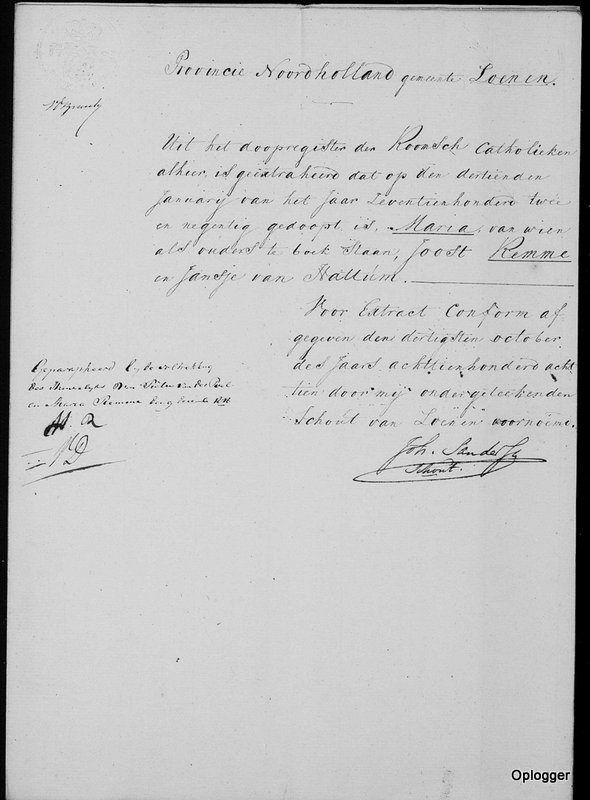 Provincie Noordholland gemeente Loenen.
Uit het doopregister der Roomsch Catholieken
alhier, is geëxtraheerd dat op den dertienden
January van het Jaar Zeventienhonderd twee
en negentig gedoopt is, Maria, van wien
als ouders te boek staan, Joost Remme
en Jansje van Hallum.
Voor Extract Conform af
gegeven den dertigsten october
des Jaars achttienhonderd acht
tien door mij ondergeteekenden
Schout van Loenen voornoemd.
Joh. Sanders
Schout.
Geparapheerd by de voltrekking
des Huwelyks van Pieter van der Poel
en Maria Remme den 9 1818
N. 2
Oplogger